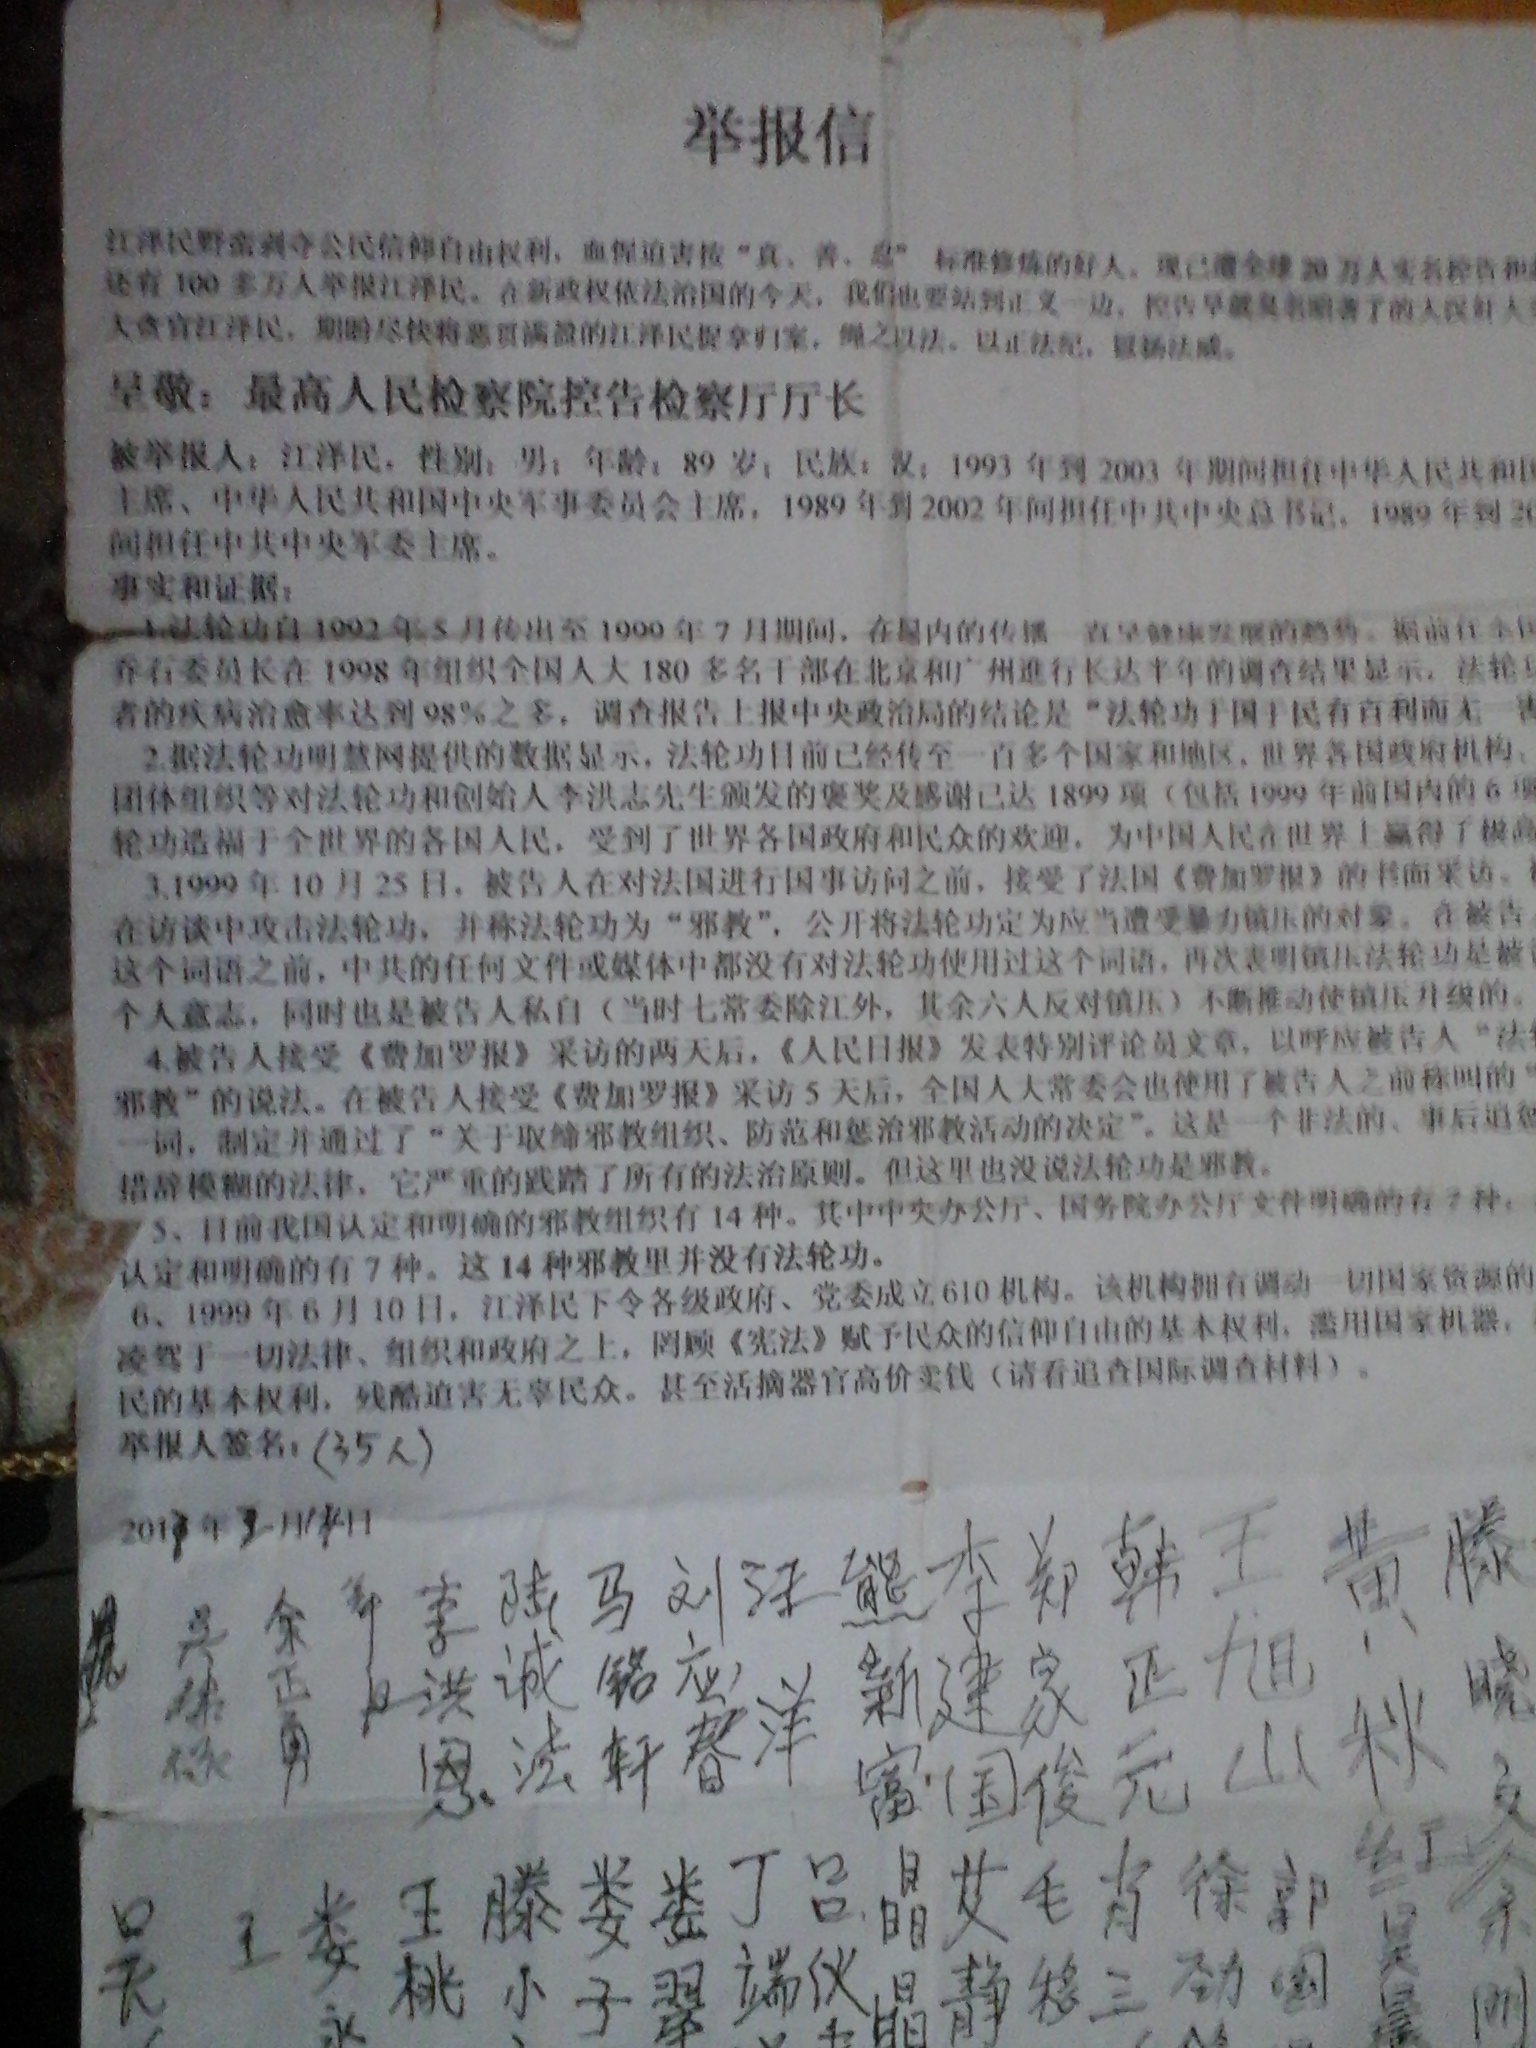 举报信
江泽民野蛮剥夺公民信仰自由权利，血腥迫害按“真、善、忍” 标准修炼的好人，现已遭全球20万人实名控告和
还有100多万人举报江泽民。在新政权依法治国的今天，我们也要站到正义一边，控告早就臭名昭著了的人汉奸人
大贪官江泽民，期盼尽快将恶贯满盈的江泽民捉拿归案，绳之以法。以正法纪，显扬法威。
呈敬：最高人民检察院控告检察厅厅长
被举报人：江泽民，性别：男；年龄：89岁；民族：汉；1993年到2003年期间担任中华人民共和国
主席、中华人民共和国中央军事委员会主席，1989年到2002年间担任中共中央总书记，1989年到20
间担任中共中央军委主席。
事实和证据：
1.法轮功自1992年5月传出至1999年7月期间，在国内的传播一直呈健康发展的趋势。据前任全国
乔石委员长在1998年组织全国人大180多名干部在北京和广州进行长达半年的调查结果显示，法轮功
者的疾病治愈率达到98%之多，调查报告上报中央政治局的结论是“法轮功于国于民有百利而无一害
2.据法轮功明慧网提供的数据显示，法轮功目前已经传至一百多个国家和地区，世界各国政府机构、
团体组织等对法轮功和创始人李洪志先生颁发的褒奖及感谢已达1899项（包括1999年前国内的6项
轮功造福于全世界的各国人民，受到了世界各国政府和民众的欢迎，为中国人民在世界上赢得了极高
3.1999年10月25日，被告人在对法国进行国事访问之前，接受了法国《费加罗报》的书面采访。
在访谈中攻击法轮功，并称法轮功为“邪教”，公开将法轮功定为应当遭受暴力镇压的对象。在被告
这个词语之前，中共的任何文件或媒体中都没有对法轮功使用过这个词语，再次表明镇压法轮功是被告
个人意志，同时也是被告人私自（当时七常委除江外，其余六人反对镇压）不断推动使镇压升级的。
4.被告人接受《费加罗报》采访的两天后，《人民日报》发表特别评论员文章，以呼应被告人“法轮
邪教”的说法。在被告人接受《费加罗报》采访5天后，全国人大常委会也使用了被告人之前称叫的“
一词，制定并通过了“关于取缔邪教组织、防范和惩治邪教活动的决定”。这是一个非法的、事后追惩
措辞模糊的法律，它严重的践踏了所有的法治原则。但这里也没说法轮功是邪教。
5、目前我国认定和明确的邪教组织有14种。其中中央办公厅、国务院办公厅文件明确的有7种；
认定和明确的有7种。这14种邪教里并没有法轮功。
6、1999年6月10日，江泽民下令各级政府、党委成立610机构。该机构拥有调动一切国家资源的
凌驾于一切法律、组织和政府之上，罔顾《宪法》赋予民众的信仰自由的基本权利，滥用国家机器，
民的基本权利，残酷迫害无辜民众。甚至活摘器官高价卖钱（请看追查国际调查材料）。
举报人签名：（35人）
201 年 月 日
余正勇 李洪恩 陆诚法 马铭轩 刘应春 汪洋 熊新富 李建国 郑家俊 韩正元 王旭山 黄秋红 滕晓文
王 娄永 王桃 滕小 娄子 娄翠 丁端 吕仪 晶晶 艾静 毛移 肖三 徐劲 郭国 余刚